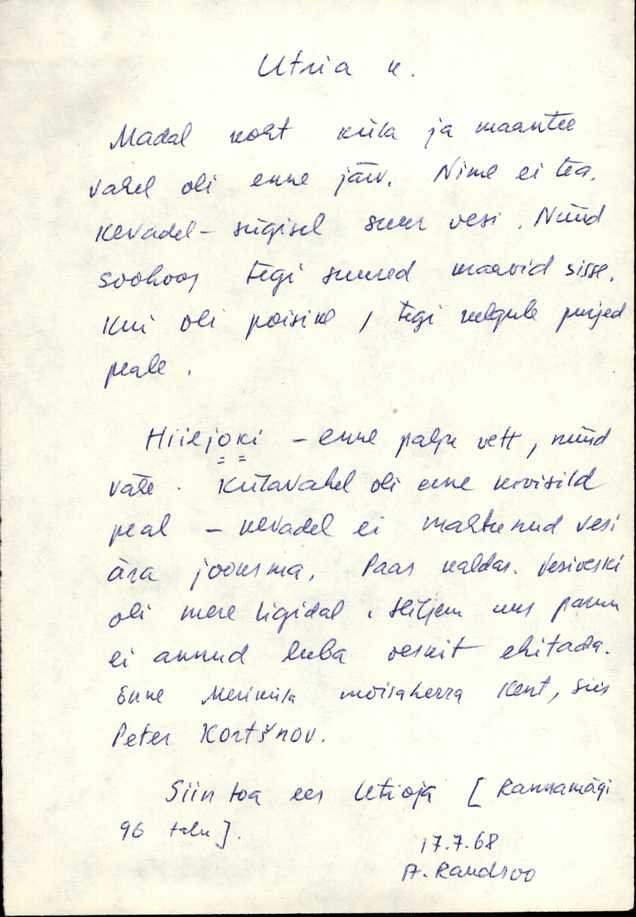 Utria k.
Madal koht küla ja maantee
vahel oli enne järv. Nime ei tea.
Kevadel - sügisel suur vesi. Nüüd
soohoog tegi suured kraavid sisse.
Kui oli poisike, tegi kelgule purjed
peale.
Hiiejoki - enne palju vett, nüüd
vähe. Külavahel oli enne kivisild
peal - kevadel ei mahtunud vesi
ära jooksma. Paas kaldas. Vesiveski
oli mere ligidal. Hiljem uus parun
ei annud luba veskit ehitada.
Enne Meriküla mõisaherra Kent, siis
Peter Kortšnov.
Siin toa ees Utioja [Rannamägi
96 talu].
17.7.68
A. Randsoo